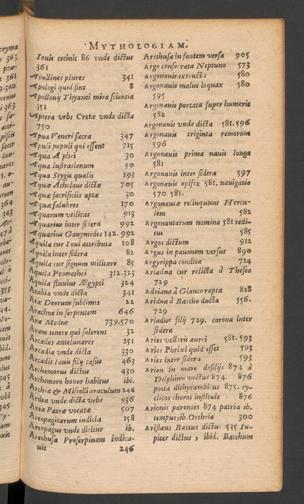 MYTHOLOGIAM.
Iouis cecinit 86 vnde dictus
361
Apollines plures 341
Apologi quid sint 8
Apollonij Thyanei mira scientia
351
Aptera vrbs Cretæ vnde dicta
750
Apua Veneri sacra 347
Apuli populi qui essent 715
Aqua A phri 30
Aqua lustrationum 50
Aqua Stygia qualis 193
Aqua Achelous dicta 705
Aqua sacrificiis apta 30
Aquæ salubres 170
Aquarum vtilitas 913
Aquarius inter sidera 992
Aquarius Ganymedes 142.994
Aquila cur Ioui attributa 108
Aquila inter sidera 82
Aquila cur signum militare 85
Aquila Promethei 312.323
Aquila fluuius Ægypti 324
Arabia vnde dicta 341
Aræ Deorum sublimes 22
Arachne in serpentem 646
Aræ Mœnæ 739.570
Aram tenere qui solerent 32
Arcades antelunares 251
Arcadia vnde dicta 330
Arcadis Iouis filij casus 463
Archemorus dictus 430
Archemoro honor habitus ibi.
Archiæ & Miscelli oraculum 246
Ardea vnde dicta vrbs 936
Area Patræ vocatæ 507
Areopagitarum indicia 158
Areopagus vnde dicitur ib.
Arethusa Proserpinam indica-
uit 246
Arethusa in fontem versa 905
Argo consecrata Neptuno 573
Argonauis extructa 580
Argonauis malus loquax 580
595
Argonauis portata super humeria
582
Argonauis vnde dicta 581.596
Argonauis triginta remorum
596
Argonauis prima nauis longa
581
Argonauis inter sidera 597
Argonauis opifex 581. nauigatio
570 581.
Argonautæ relinquunt Hercu-
lem 582
Argonautarum nomina 581 redi-
tus 585
Argos dictum 912
Argus in pauonem versus 890
Argyrippa condita 714
Ariadna cur relicta à Theseo
729
Ariadna à Glauco rapta 818
Ariadna à Baccho ducta 556.
729
Ariadnæ filij 729. corona inter
sidera
Aries velleris auri 581.593
Aries Phrixi quid esset 593
Aries inter sidera 593
Arion in mare desilijt 874 à
Delphino vectus 874. 876
poeta dithyrambicus 875. cy-
clicos choros instituit 876
Arionis parentes 874 patria ib.
tempus ib. Orthæia 300
Aristæus Battus dictus 535 Iu-
piter dictus 2 ibid. Bacchum